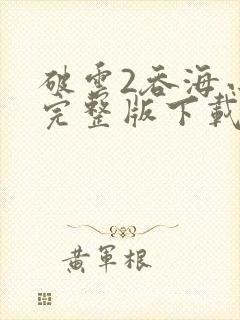 破雲2吞海
完整版下載
黃軍根